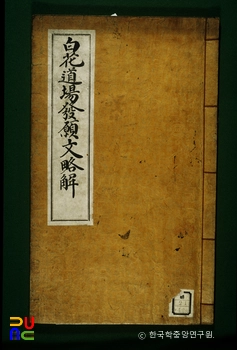 白花道場發願文略解
© 한국학중앙연구원.